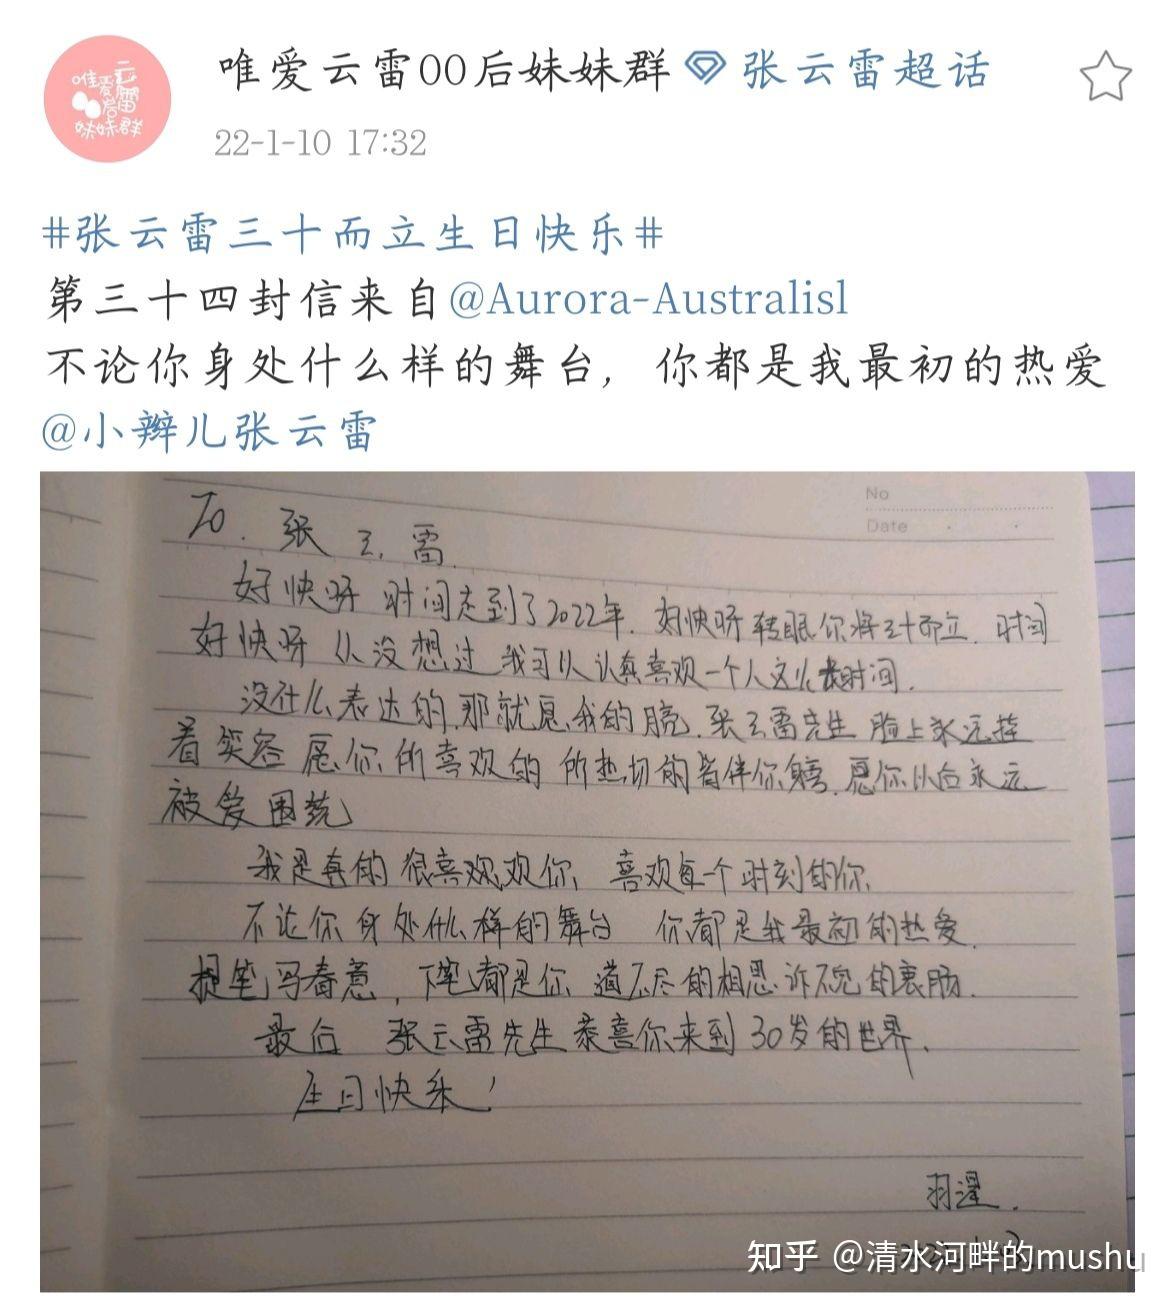 唯爱云雷00后妹妹群 张云雷超话
22-1-10 17:32
#张云雷三十而立生日快乐#
第三十四封信来自@Aurora-Australisl
不论你身处什么样的舞台，你都是我最初的热爱
@小辫儿张云雷
No
Date
To. 张云雷.
好快呀 时间走到了2022年. 好快呀 转眼你将三十而立. 时间
好快呀 从没想过 我可以认真喜欢一个人这么长时间.
没什么表达的,那就愿,我的角儿,张云雷先生 脸上永远挂
着笑容 愿你所喜欢的 所热切的皆伴你身旁.愿你以后永远
被爱围绕
我是真的 很喜欢欢你, 喜欢每一个时刻的你,
不论你身处什么样的舞台 你都是我最初的热爱.
提笔写春意, 下笔都是你 道不尽的相思诉不完的衷肠.
最后 张云雷先生 恭喜你来到30岁的世界.
生日快乐!
羽
知乎 @清水河畔的mushu
唯爱云雷
妹妹群